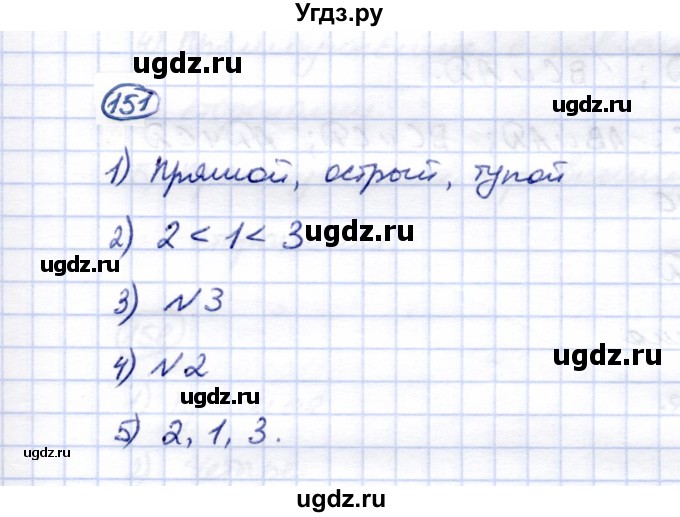 Угдз.ру
ugdz.ru
ugdz.ru
151
1) Прямой, острый, тупой
2) 2 < 1 < 3
ugdz.ru
ugdz.ru
3) N3
ugdz.ru
4) N2
ugdz.ru
5) 2, 1, 3.
ugdz.ru
ugdz.ru